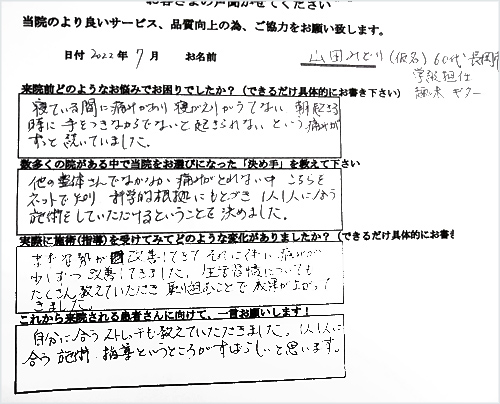 お客さまの声聞かせてください
当院のより良いサービス、品質向上の為、ご協力をお願い致します。
日付 2022年 7月 お名前 山田みどり(仮名) 60代 長岡市
学級担任
趣味 ギター
来院前どのようなお悩みでお困りでしたか?(できるだけ具体的にお書き下さい)
寝ている間に痛みがあり 寝がえりがうてない 朝起きる
時に 手をつきながらでないと 起きられない という 痛みが
ずっと 続いていました。
数多くの院がある中で当院をお選びになった「決め手」を教えて下さい
他の整体さんでなかなか 痛みがとれない中 こちらを
ネットで知り 科学的根拠 にもとづき 1人1人に合う
施術をしていただけるということで 決めました。
実際に施術(指導)を受けてみてどのような変化がありましたか?(できるだけ具体的にお書き
改善してきて それに伴い 痛みが
少しずつ 改善してきました。生活習慣についても
たくさん教えていただき 取り組むことで 成果が上がって
きました。
これから来院される患者さんに向けて、一言お願いします!
自分に合うストレッチも教えていただきました。1人1人に
合う 施術・指導というところがすばらしいと思います。